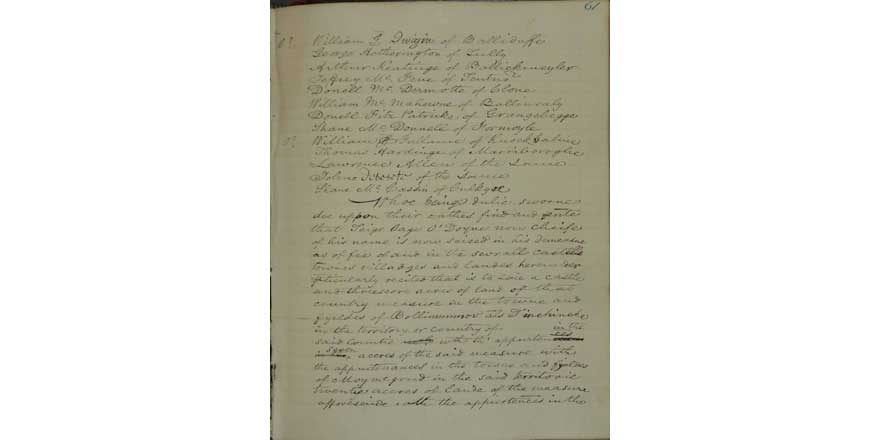 61
William Dwigin of Balliduffe
George Hetherington of Tully
Arthur Keatinge of Ballickmoyler
Jeffrey Mc
Donell Mc Dermotte of Clone
William Mc Mahowne of Baltinraly
Donell Fitz Patricke, of Grangebegge
Shane Mc Donnell of Formoyle
William Fallame of Knock
Thomas Hardinge of Mariboroghe
Lawrence Allen of the Same
of the Same
Shane Mc Cashin of
Whoe being dulie sworne
doe upon their oathes find and
that Teige Oage O'Doyne now cheife
of his name is now seised in his demesne
as of fee of and in the severall castells
townes villadges and landes
pticularly recited that is to saie a castle
and threescore acres of land of that
country measure in the towne and
fyeldes of als
in the territory or country of in the
said countie with the' apptenances
acres of the said measure with
the apptenances in the townes and fyeldes
of in the said territorie
twentie acres of lande of the measure
afforesaide with the apptences in the